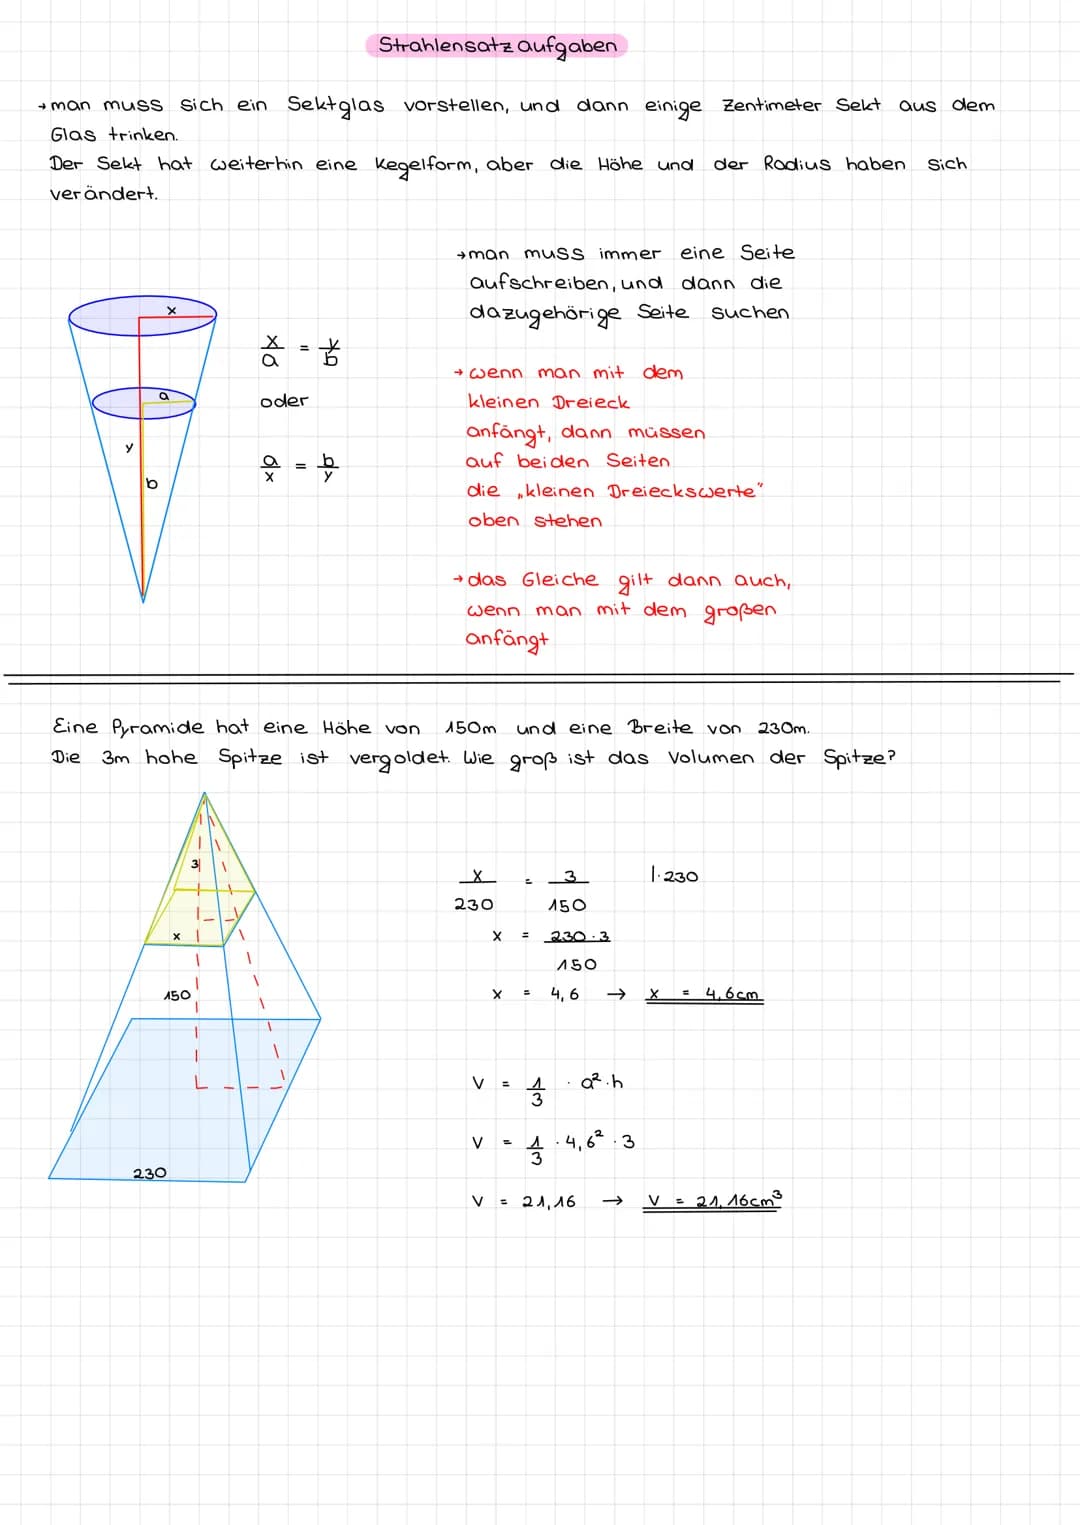 Strahlensatzaufgaben
→ man muss sich ein Sektglas vorstellen, und dann einige Zentimeter Sekt aus dem
Glas trinken.
Der Sekt hat weiterhin eine Kegelform, aber die Höhe und der Radius haben sich
verändert.
x
a
y
b
x/a = y/b
oder
a/x = b/y
→ man muss immer eine Seite
aufschreiben, und dann die
dazugehörige Seite suchen
→ wenn man mit dem
kleinen Dreieck
anfängt, dann müssen
auf beiden Seiten
die „kleinen Dreieckswerte"
oben stehen
→ das Gleiche gilt dann auch,
wenn man mit dem großen
anfängt
Eine Pyramide hat eine Höhe von 150m und eine Breite von 230m.
Die 3m hohe Spitze ist vergoldet. Wie groß ist das Volumen der Spitze?
3
x
150
230
x/230 = 3/150 |·230
x = 230·3/150
x = 4,6 → x = 4,6cm
V = 1/3 · a²·h
V = 1/3 · 4,6² · 3
V = 21,16 → V = 21,16cm³